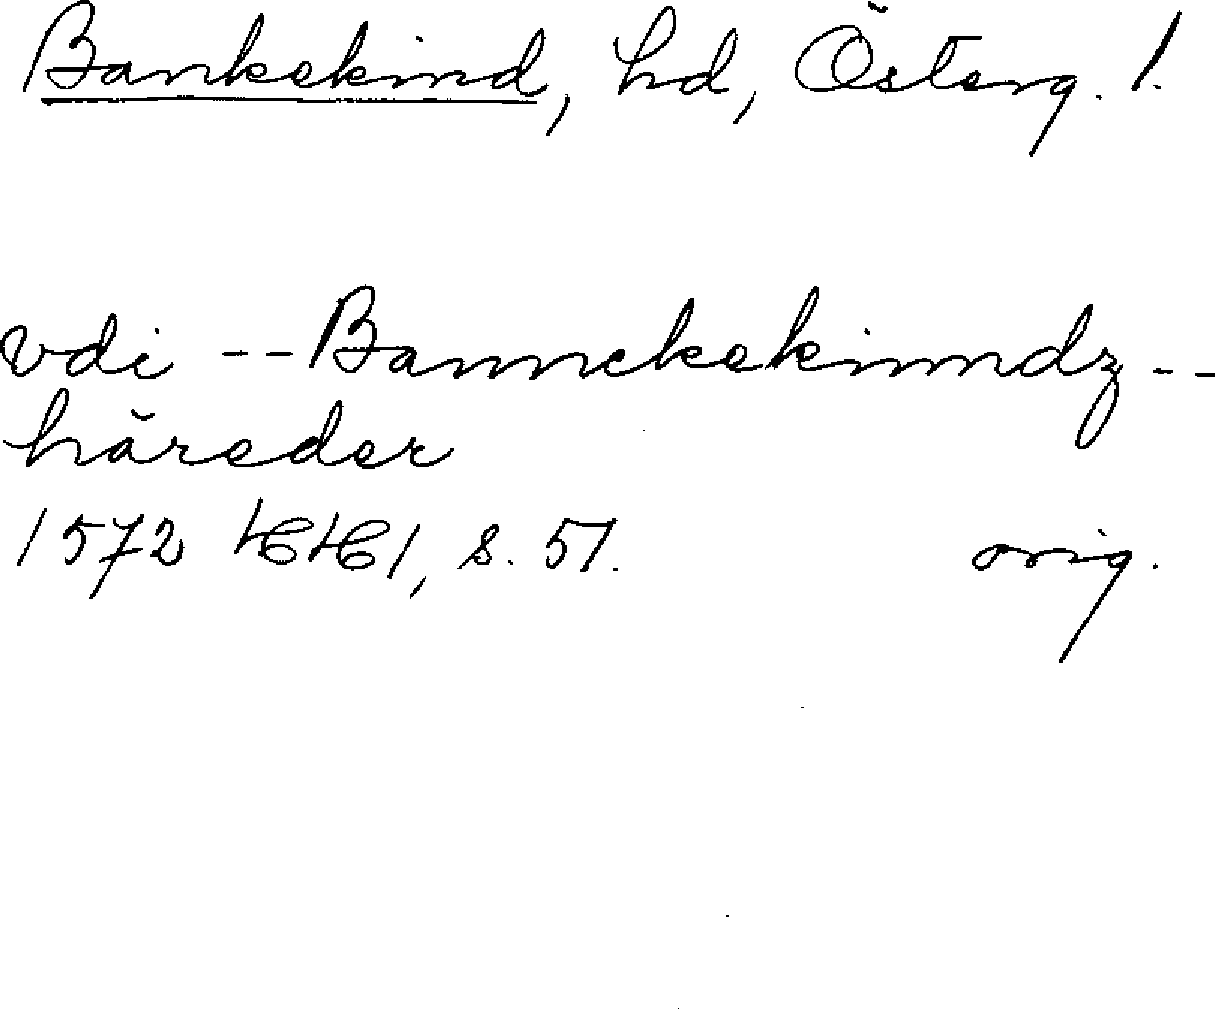 Bankekind, hd, Österg. l.
vdi -- Bannekekinndz --
häreder
1572 HH1, s. 51. orig.